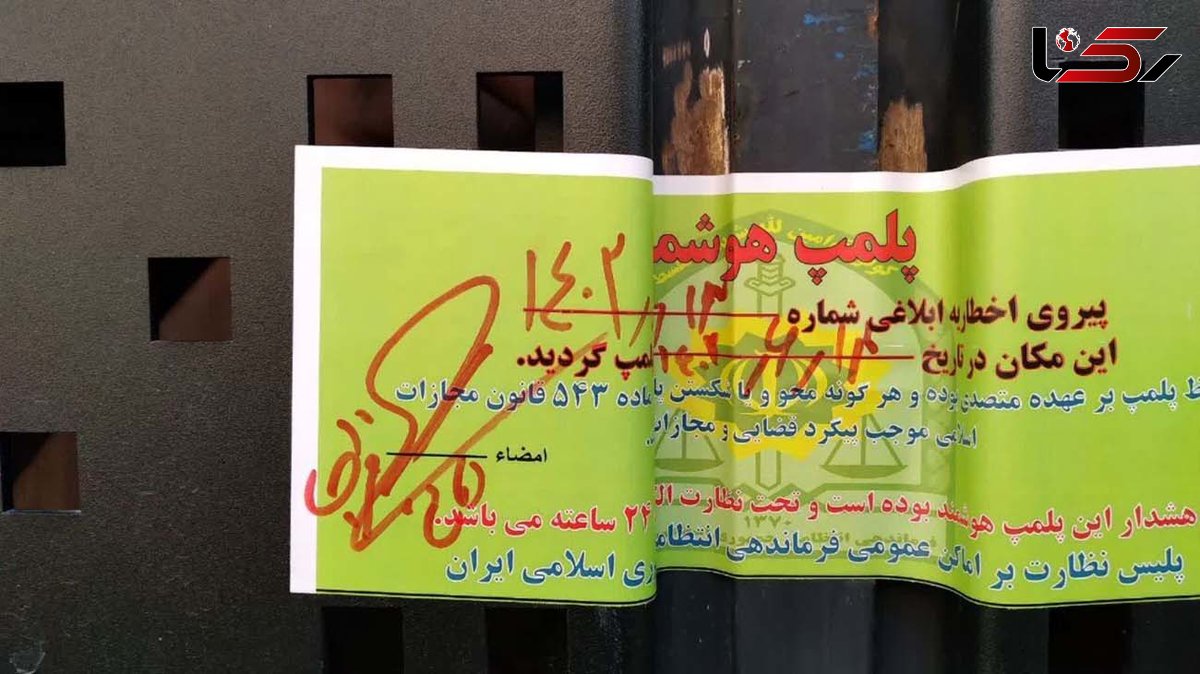 رکنا
پلمپ هوشم
پیروی اخطاریه ابلاغی شماره ۱۴۰۲
این مکان در تاریخ لمپ گردید.
ظ پلمپ بر عهده متصدی بوده و هر گونه محو و یا شکستن پل ماده ۵۴۳ قانون مجازات
اسلامی موجب پیگرد قضایی و مجازات
امضاء
هشدار این پلمپ هوشمند بوده است و تحت نظارت الک ۲۴ ساعته می باشد.
۱۳۷۰
پلیس نظارت بر اماکن عمومی فرماندهی انتظامی ری اسلامی ایران